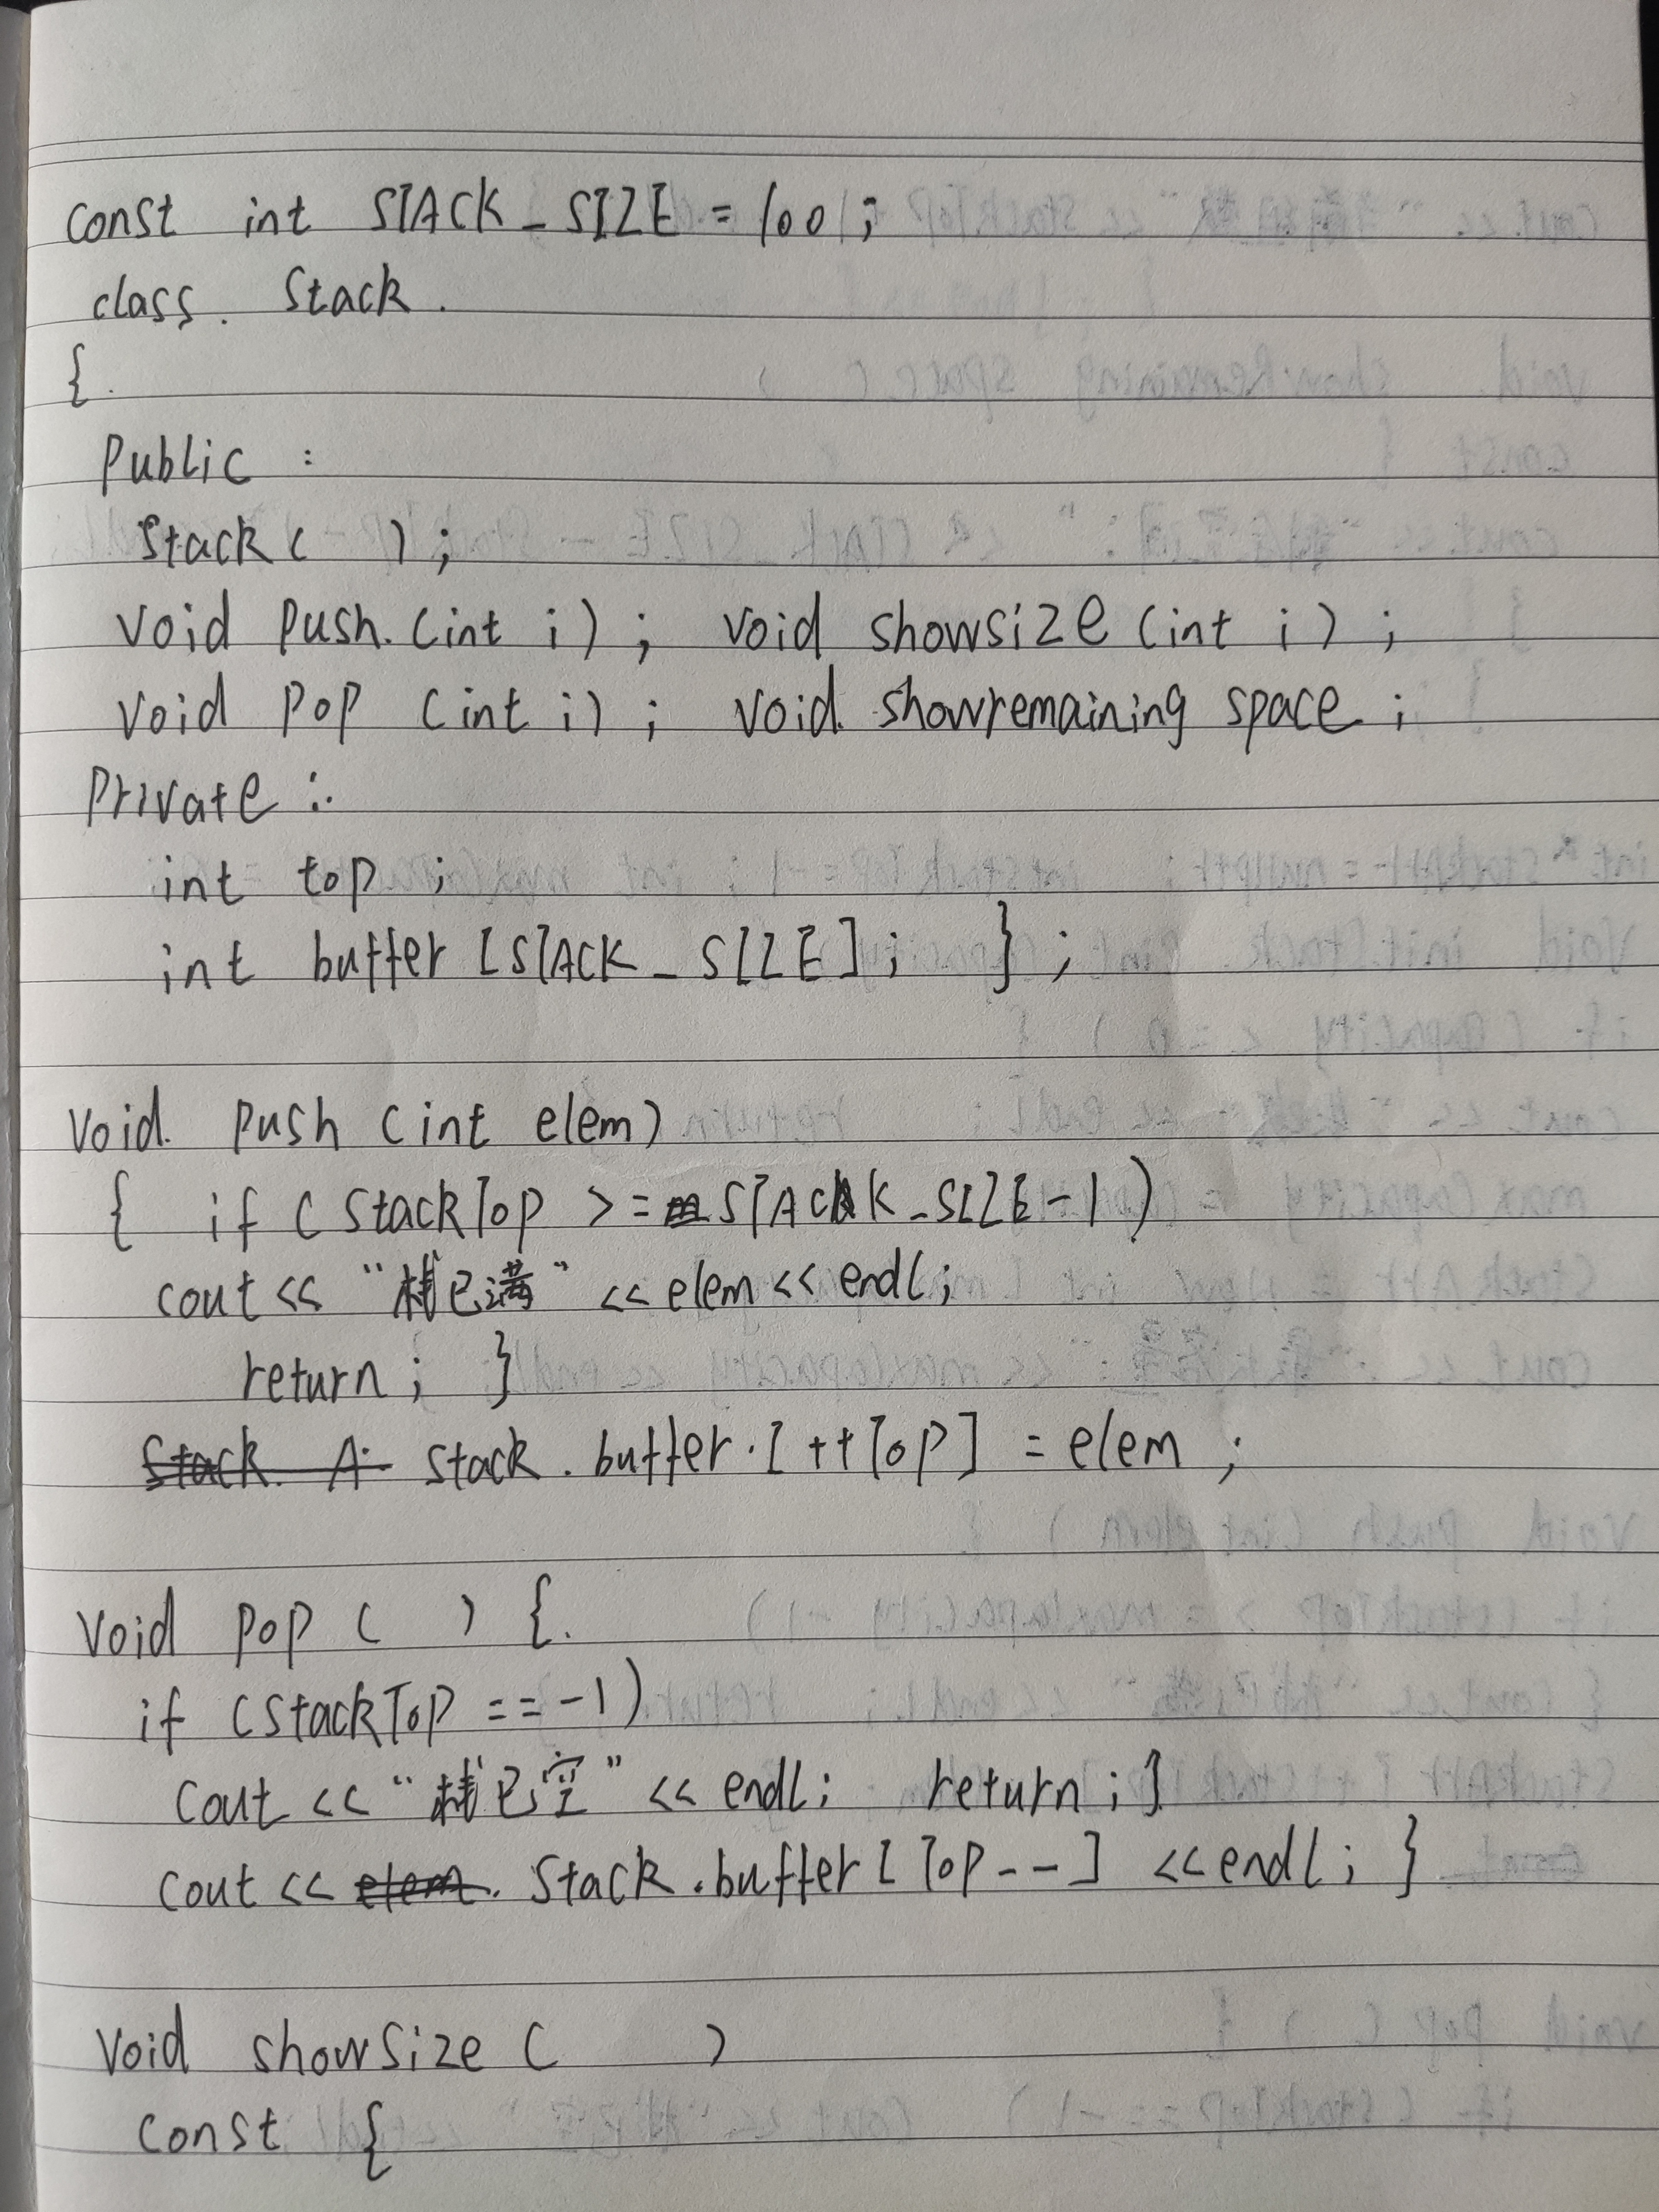 const int STACK_SIZE = 100;
class. Stack.
{.
Public :
Stack( );
void Push.(int i); void showsize(int i);
void Pop (int i); void. showremaining space;
Private :.
int top;
int buffer [STACK_SIZE]; };
void. Push (int elem)
{ if (StackTop >= STACK_SIZE-1)
cout << "栈已满" << elem << endl;
return; }
Stack. A. Stack.buffer.[++Top] = elem;
void Pop ( ) {.
if (StackTop == -1)
Cout << "栈已空" << endl; return;}
Cout << elem. Stack.buffer[Top--] <<endl; }
Void showsize ( )
Const {